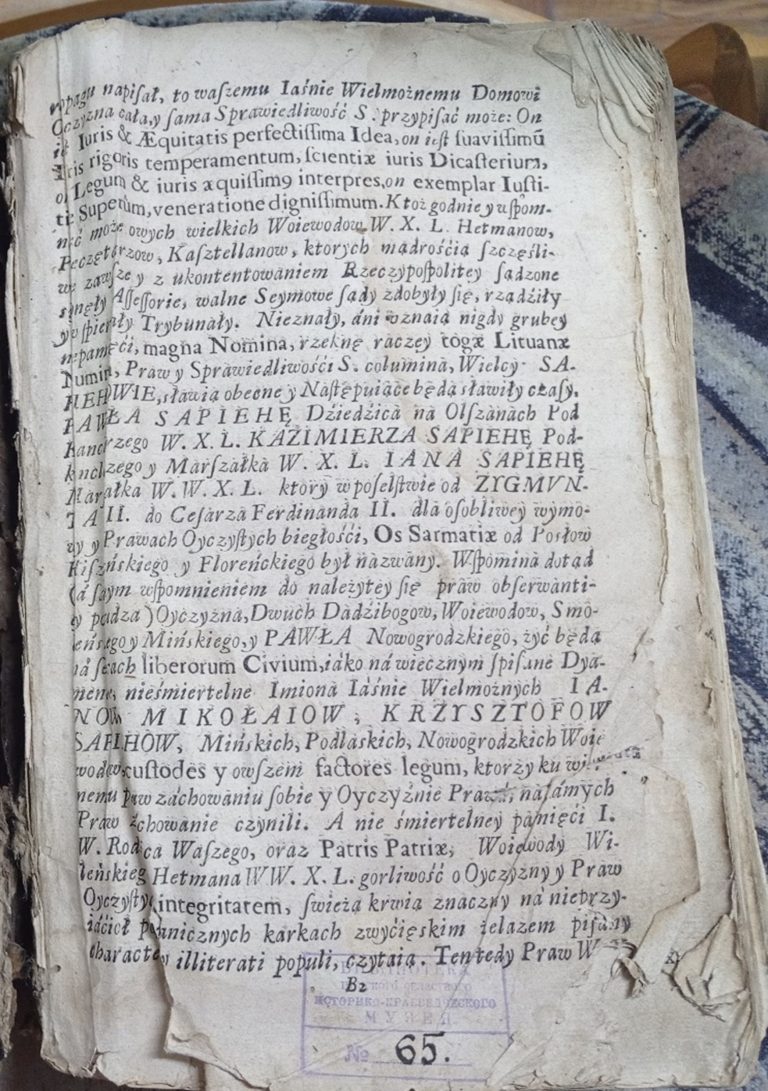 napiſał, to waſzemu Iáśnie Wielmożnemu Domowi
Oyczyzna cáła, y ſama Spráwiedliwość S. przypiſáć może: On
Iuris & Æquitatis perfectiſſima Idea, on ieſt ſuaviſſimũ
Iuris rigoris temperamentum, ſcientiæ iuris Dicaſterium,
on Legum & iuris æquiſſim9 interpres, on exemplar Iuſti-
tiæ Superum, veneratione digniſſimum. Ktoż godnie y wſpom-
nieć może owych wielkich Woiewodow W. X. L. Hetmanow,
Pieczętárzow, Kaſztellanow, ktorych mądrośćią ſzczęśli-
we záwſze y z ukontentowániem Rzeczypoſpolitey ſądzone
Aſſeſſorie, walne Seymowe ſądy zdobyły ſię, rządźiły
y wſpieráły Trybunáły. Nieznály, áni uznaią nigdy grubey
niepamęći, magna Nomina, rzeknę ráczey togæ Lituanæ
Numina, Praw y Spráwiedliwośći S. columina, Wielcy SA-
PIEHOWIE, ſłáwią obecne y Náſtępuiące będą ſłáwiły czáſy,
PAWŁA SAPIEHĘ Dźiedźicá ná Olſzánách Pod
Kanclerzego W. X. L. KAZIMIERZA SAPIEHĘ Pod-
kánclerzego y Márſzałká W. X. L. IANA SAPIEHĘ
Márſzałka W. W. X. L. ktory w poſelſtwie od ZYGMVN-
TA II. do Ceſárza Ferdinanda II. dla oſobliwey wymo-
wy y Práwach Oyczyſtych biegłośći, Os Sarmatiæ od Poſłow
Hiſzpáńſkiego y Floreńckiego był názwány. Wſpomina dotąd
(á ſámym wſpomnieniem do należytey ſię praw obſerwanti-
ey pędza) Oyczyzná, Dwuch Dadźibogow, Woiewodow, Smo-
leńſkiego y Mińſkiego, y PAWŁA Nowogrodzkiego, żyć będą
ná ſercách liberorum Civium, iáko ná wiecznym ſpiſane Dya-
mencie, nieśmiertelne Imioná Iáśnie Wielmożnych IA-
NOW, MIKOŁAIOW, KRZYSZTOFOW
SAPIEHOW, Mińſkich, Podláſkich, Nowogrodzkich Woie
wodow, cuſtodes y owſzem factores legum, ktorzy ku
nemu praw záchowaniu ſobie y Oyczyźnie Prawá, ná ſámych
Praw záchowanie czynili. A nie śmiertelney pámięći I.
W. Rodźicá Wáſzego, oraz Patris Patriæ, Woiewody Wi-
leńſkiego Hetmana W W. X. L. gorliwość o Oyczyzny y Praw
Oyczyſtych integritatem, ſwieżą krwią znáczny ná nieprzy-
iáćioł gránicznych karkách zwyćięſkim żelazem piſány
charácter, illiterati populi, czytáią. Ten tedy Praw W
B2
БИБЛИОТЕКА
областного
ИСТОРИКО-КРАЕВЕДЧЕСКОГО
МУЗЕЯ
№ 65.